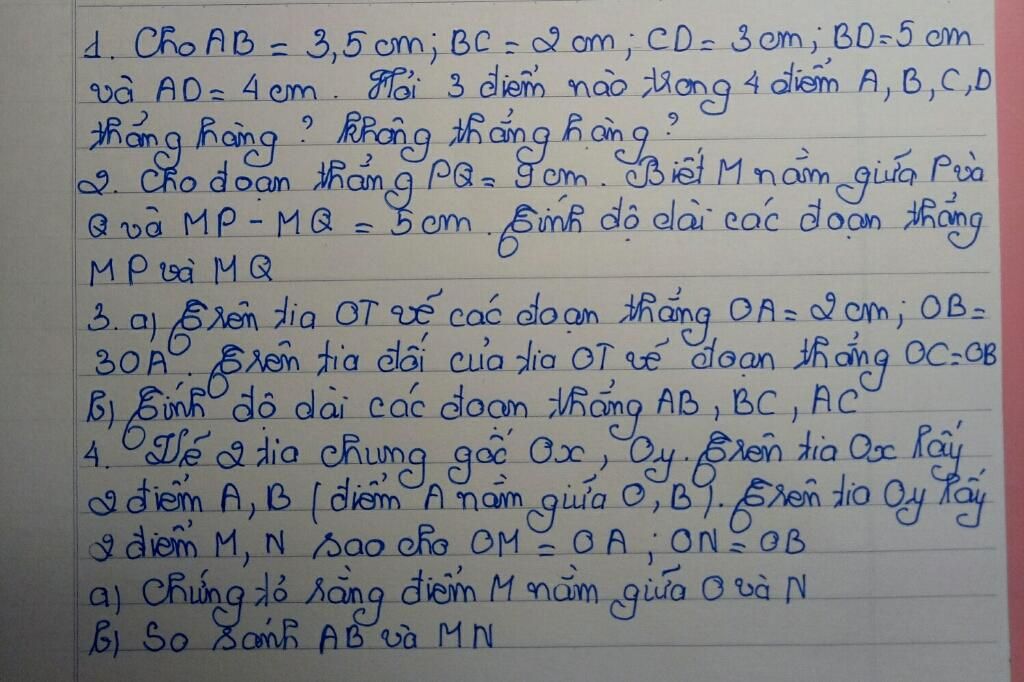 1. Cho AB = 3,5 cm; BC = 2 cm; CD = 3 cm; BD = 5 cm
và AD = 4 cm. Hỏi 3 điểm nào trong 4 điểm A, B, C, D
thẳng hàng? không thẳng hàng?
2. Cho đoạn thẳng PQ = 9 cm. Biết M nằm giữa P và
Q và MP - MQ = 5 cm. Tính độ dài các đoạn thẳng
MP và MQ
3. a) Trên tia OT vẽ các đoạn thẳng OA = 2 cm; OB =
3OA. Trên tia đối của tia OT vẽ đoạn thẳng OC = OB
b) Tính độ dài các đoạn thẳng AB, BC, AC
4. Vẽ 2 tia chung gốc Ox, Oy. Trên tia Ox lấy
2 điểm A, B (điểm A nằm giữa O, B). Trên tia Oy lấy
2 điểm M, N sao cho OM = OA; ON = OB
a) Chứng tỏ rằng điểm M nằm giữa O và N
b) So sánh AB và MN